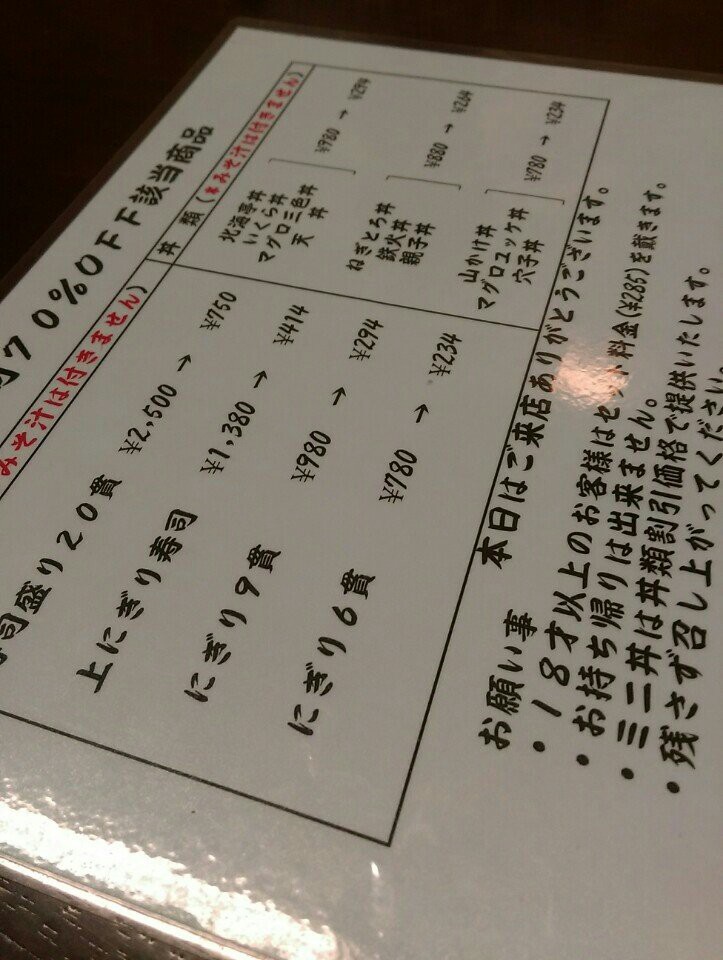 70%OFF該当商品
みそ汁は付きません)
司盛り20貫 ¥2,500 → ¥750
上にぎり寿司 ¥1,380 → ¥414
にぎり9貫 ¥980 → ¥294
にぎり6貫 ¥780 → ¥234
丼 類 (※みそ汁は付きません)
北海亭丼
いくら丼
マグロ三色丼
天 丼
¥980 → ¥294
ねぎとろ丼
鉄火丼
親子丼
¥880 → ¥264
山かけ丼
マグロユッケ丼
穴子丼
¥780 → ¥234
本日はご来店ありがとうございます。
お願い事
・18才以上のお客様はセット料金(¥285)を戴きます。
・お持ち帰りは出来ません。
・ミニ丼は丼類割引価格で提供いたします。
・残さず召し上がってください。